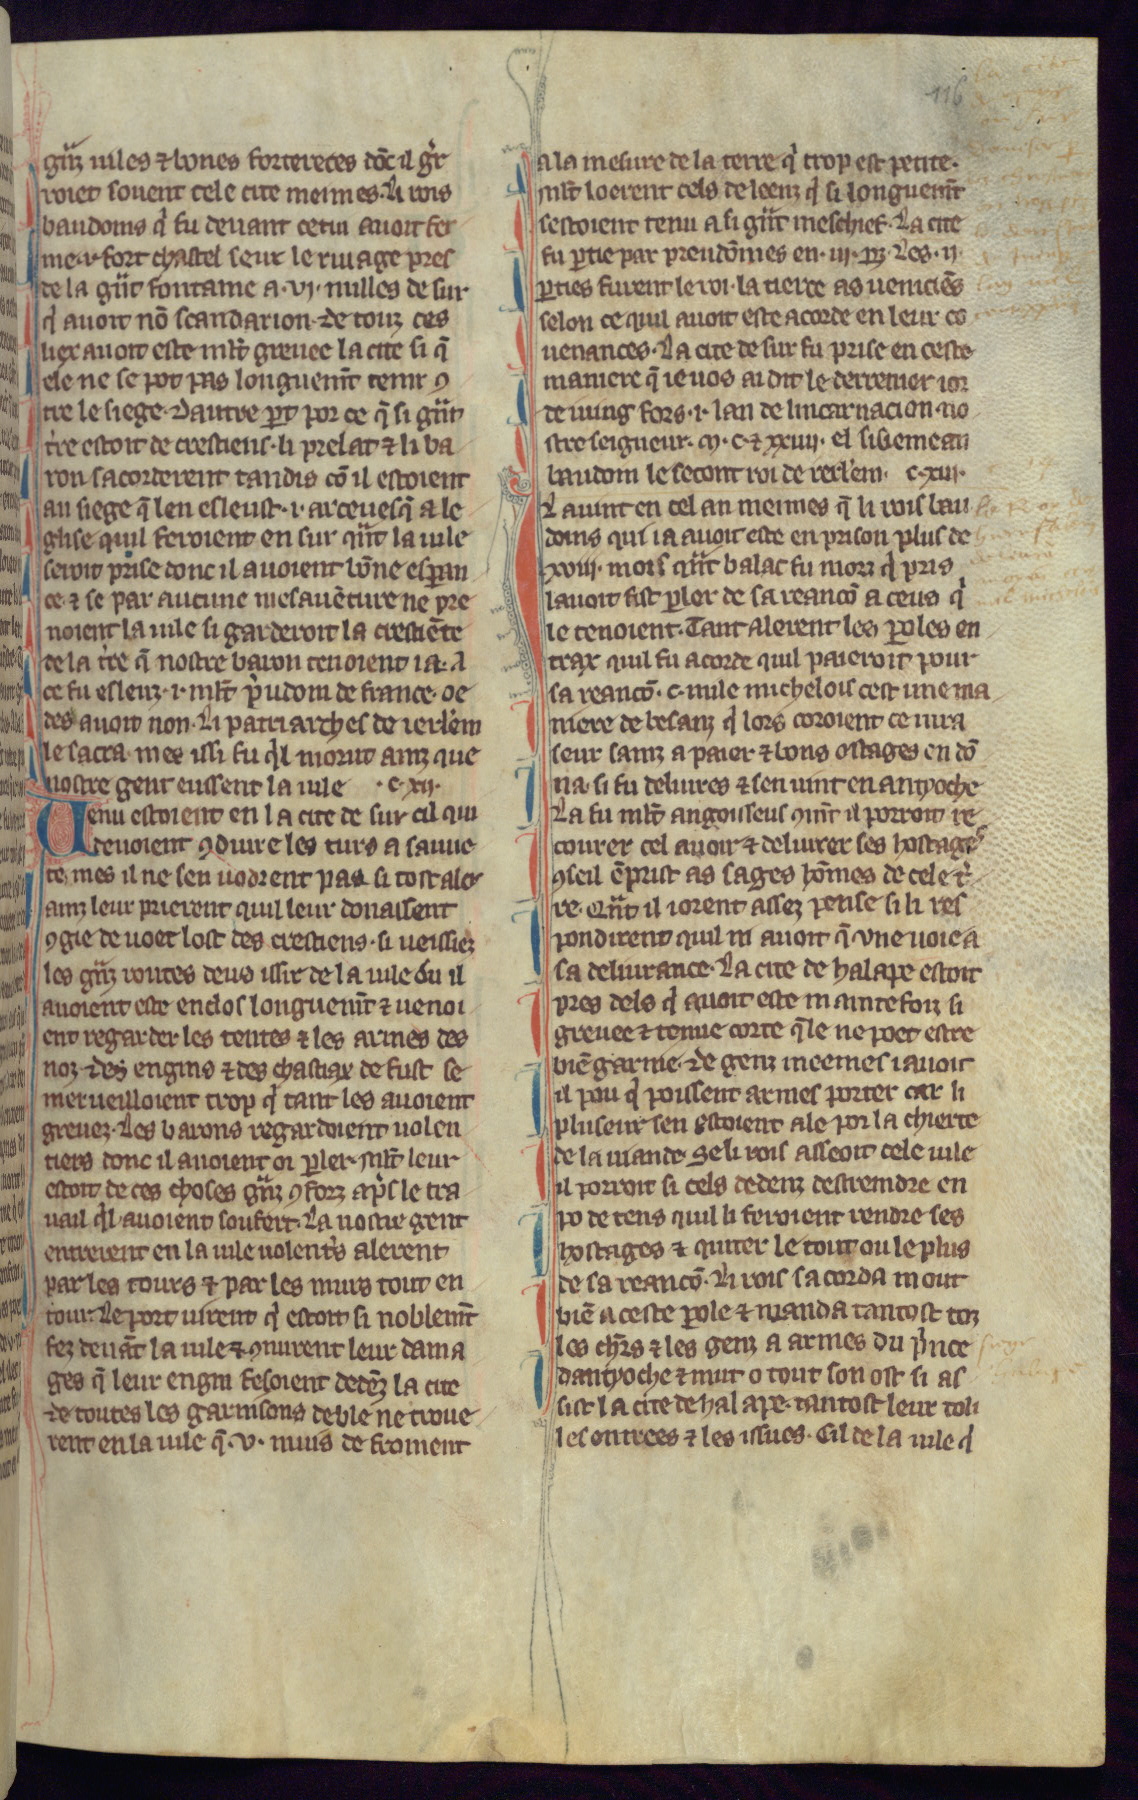 116
gñz viles ⁊ bones fortereces dõc il g̃r
roiet souent cele cite meimes. Li rois
baudoins q̓ fu deuant cetui auoit fer
me .i. fort chastel seur le riuage pres
de la g̃nt fontaine a .vi. milles de sur
q̓ auoit nõ scandarion. de touz ces
liex auoit este ml̃t greuee la cite si q̃
ele ne se pot pas longuem̃t tenir ꝯ
tre le siege. Dautre ꝑt por ce q̃ si g̃nt
t̃re estoit de crestiens. li prelat ⁊ li ba
ron sacorderent tandis cõ il estoient
au siege q̃ len esleust .i. arceuesq̃ a le
glise quil feroient en sur q̃nt la uile
seroit prise donc il auoient bõne espan
ce. ⁊ se par aucune mesauẽture ne pre
noient la uile si garderoit la crestiẽte
de la t̃re q̃ nostre baron tenoient ia. A
ce fu esleuz .i. ml̃t p̃udom de france. oe
des auoit non. Li patriarches de ierl̃em
le sacra. mes issi fu q̓l morut ainz que
nostre gent eussent la uile .c. xii.
Venu estoient en la cite de sur cil qui
deuoient ꝯduire les turs a sauue
te. mes il ne sen uodrent pas si tost aler
ainz leur prierent quil leur donassent
ꝯgie de uoer lost des crestiens. si ueissiez
les g̃nz routes deus issir de la uile ou il
auoient este enclos longuem̃t ⁊ uenoi
ent regarder les tentes ⁊ les armes des
noz. des engins ⁊ des chastiax de fust se
merueilloient trop q̓ tant les auoient
greuez. Les barons regardoient uolen
tiers donc il auoient oi ꝑler. ml̃t leur
estoit de ces choses g̃nz ꝯforz ap̃s le tra
uail q̓l auoient soufert. La nostre gent
entrerent en la uile uolent̃s alerent
par les tours ⁊ par les murs tout en
tour. Le port uirent q̓ estoit si noblem̃t
fez deuãt la uile ⁊ ꝯnurent leur dama
ges q̃ leur engin fesoient dedẽz la cite
de toutes les garnisons de ble ne troue
rent en la uile q̃ .v. muis de froment
a la mesure de la terre q̓ trop est petite.
ml̃t loerent cels de leenz q̓ si longuem̃t
sestoient tenu a si g̃nt meschief. La cite
fu ꝑtie par preudõmes en .iii. ꝑz. Les .ii.
ꝑties furent le roi. la tierce as ueniciẽs
selon ce quil auoit este acorde en leur co
uenances. La cite de sur fu prise en ceste
maniere q̃ ie uos ai dit le derrenier ior
de iuing fors .i. lan de lincarnacion no
stre seigneur. m. c. ⁊ xxiiii. el sisieme an
baudoin le secont roi de ierl̃em. c. xiii.
Il auint en cel an meimes q̃ li rois bau
doins qui ia auoit este en prison plus de
xviii. mois q̃nt balac fu morz q̓ pris
lauoit fist ꝑler de sa reancõ a ceus q̓
le tenoient. Tant alerent les ꝑoles en
trax quil fu acorde quil paieroit pour
sa reancõ .c. mile michelois cest une ma
niere de besanz q̓ lors coroient ce iura
seur sainz a paier ⁊ bons ostages en dõ
na. si fu deliures ⁊ sen uint en antyoche
La fu ml̃t angoisseus ꝯm̃t il porroit re
courer cel auoir ⁊ deliurer ses hostages
ꝯseil ẽprist as sages hõmes de cele t̃
re. Q̃nt il iorent assez pense si li res
pondirent quil ni auoit q̃ vne uoie a
sa deliurance. La cite de halape estoit
pres dels q̓ auoit este maintefoiz si
greuee ⁊ tenue corte q̃le ne poet estre
biẽ garnie. de genz meemes i auoit
il pou q̓ poissent armes porter car li
pluseur sen estoient ale por la chierte
de la uiande. Se li rois asseoit cele uile
il porroit si cels dedenz destreindre en
po de tens quil li feroient rendre ses
hostages ⁊ quiter le tout ou le plus
de sa reancõ. Li rois sacorda mout
biẽ a ceste ꝑole ⁊ manda tantost toz
les ch̃rs ⁊ les genz a armes du p̃nce
dantyoche ⁊ mut o tout son ost si as
sist la cite de halape. tantost leur toli
les entrees ⁊ les issues. Cil de la uile q̓